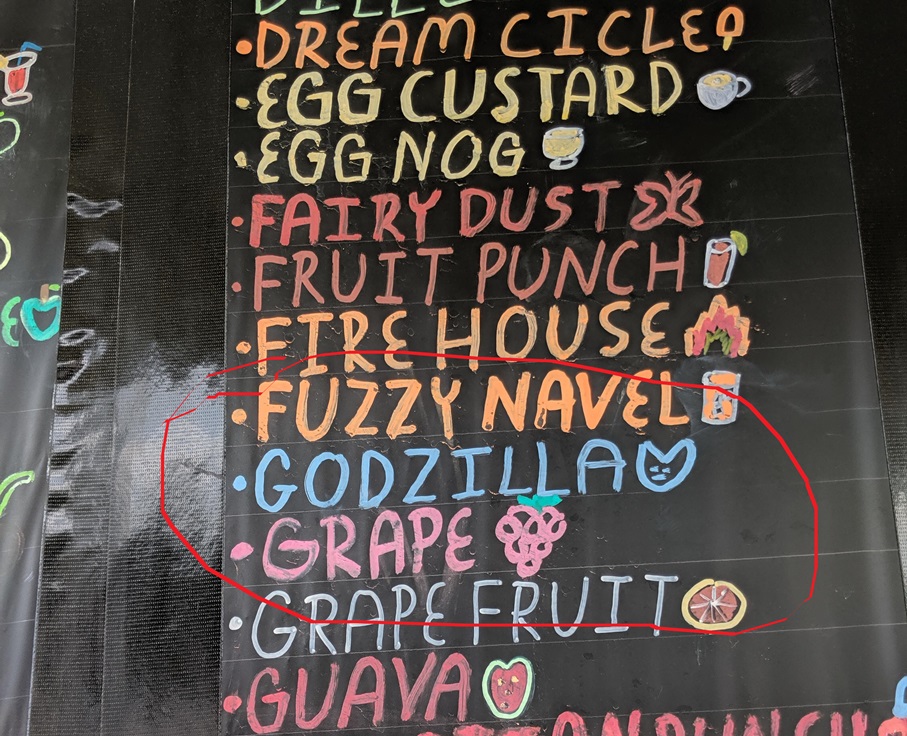 • DREAM CICLE
• EGG CUSTARD
• EGG NOG
• FAIRY DUST
• FRUIT PUNCH
• FIRE HOUSE
• FUZZY NAVEL
• GODZILLA
• GRAPE
• GRAPE FRUIT
• GUAVA